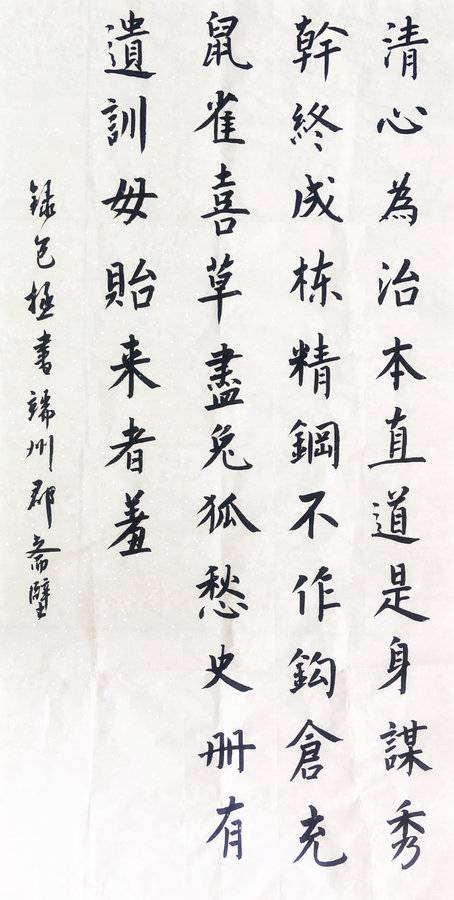 清心為治本直道是身謀秀
幹終成栋精鋼不作鈎倉充
鼠雀喜草盡兔狐愁史册有
遺訓毋貽来者羞
録包拯書端州郡斋壁